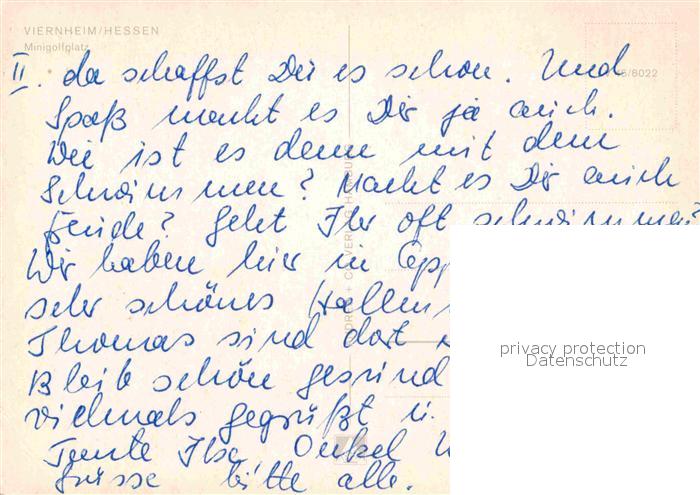 VIERNHEIM/HESSEN
Minigolfplatz
II. da schaffst Du es schon. Und
/8022
Spaß macht es Dir ja auch.
Wie ist es denn mit dem
Schwimmen? Macht es Dir auch
Freude? Geht Ihr oft schwimmen?
Wir haben hier in Epp
sehr schönes Hallen
Thomas sind dort
Bleib schön gesund
vielmals gegrüßt u.
Tante Ilse Onkel
Grüsse bitte alle.
privacy protection
Datenschutz